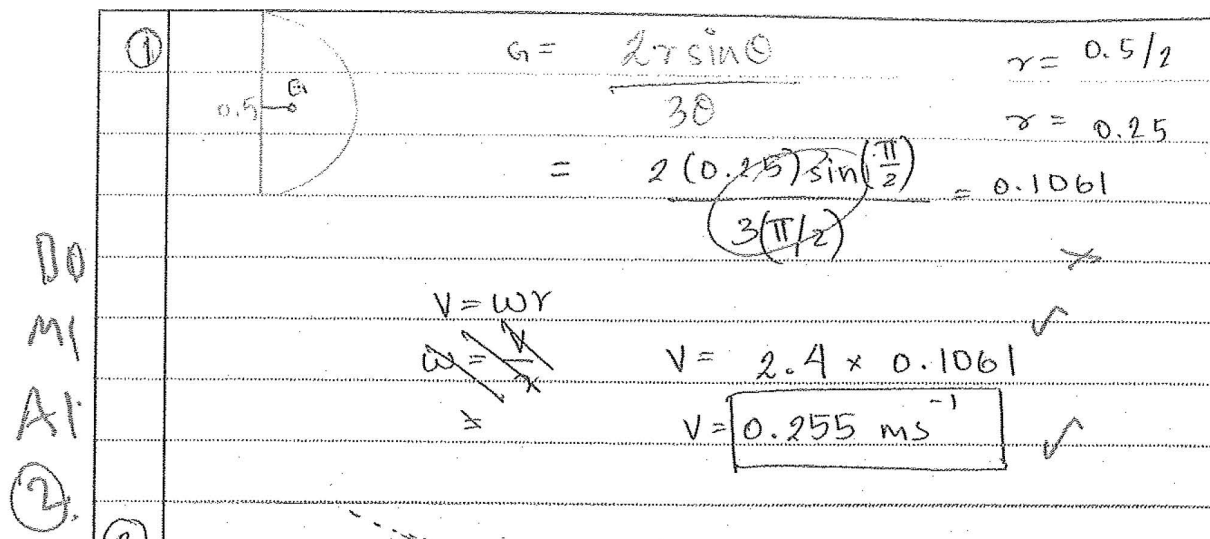 ①
0.5 G
G = 2r sinθ / 3θ
r = 0.5/2
r = 0.25
= 2(0.25) sin(π/2) / 3(π/2) = 0.1061
B0 ×
V = ωr ✓
M1
ω = V/r
V = 2.4 × 0.1061
A1
V = 0.255 ms⁻¹ ✓
②.